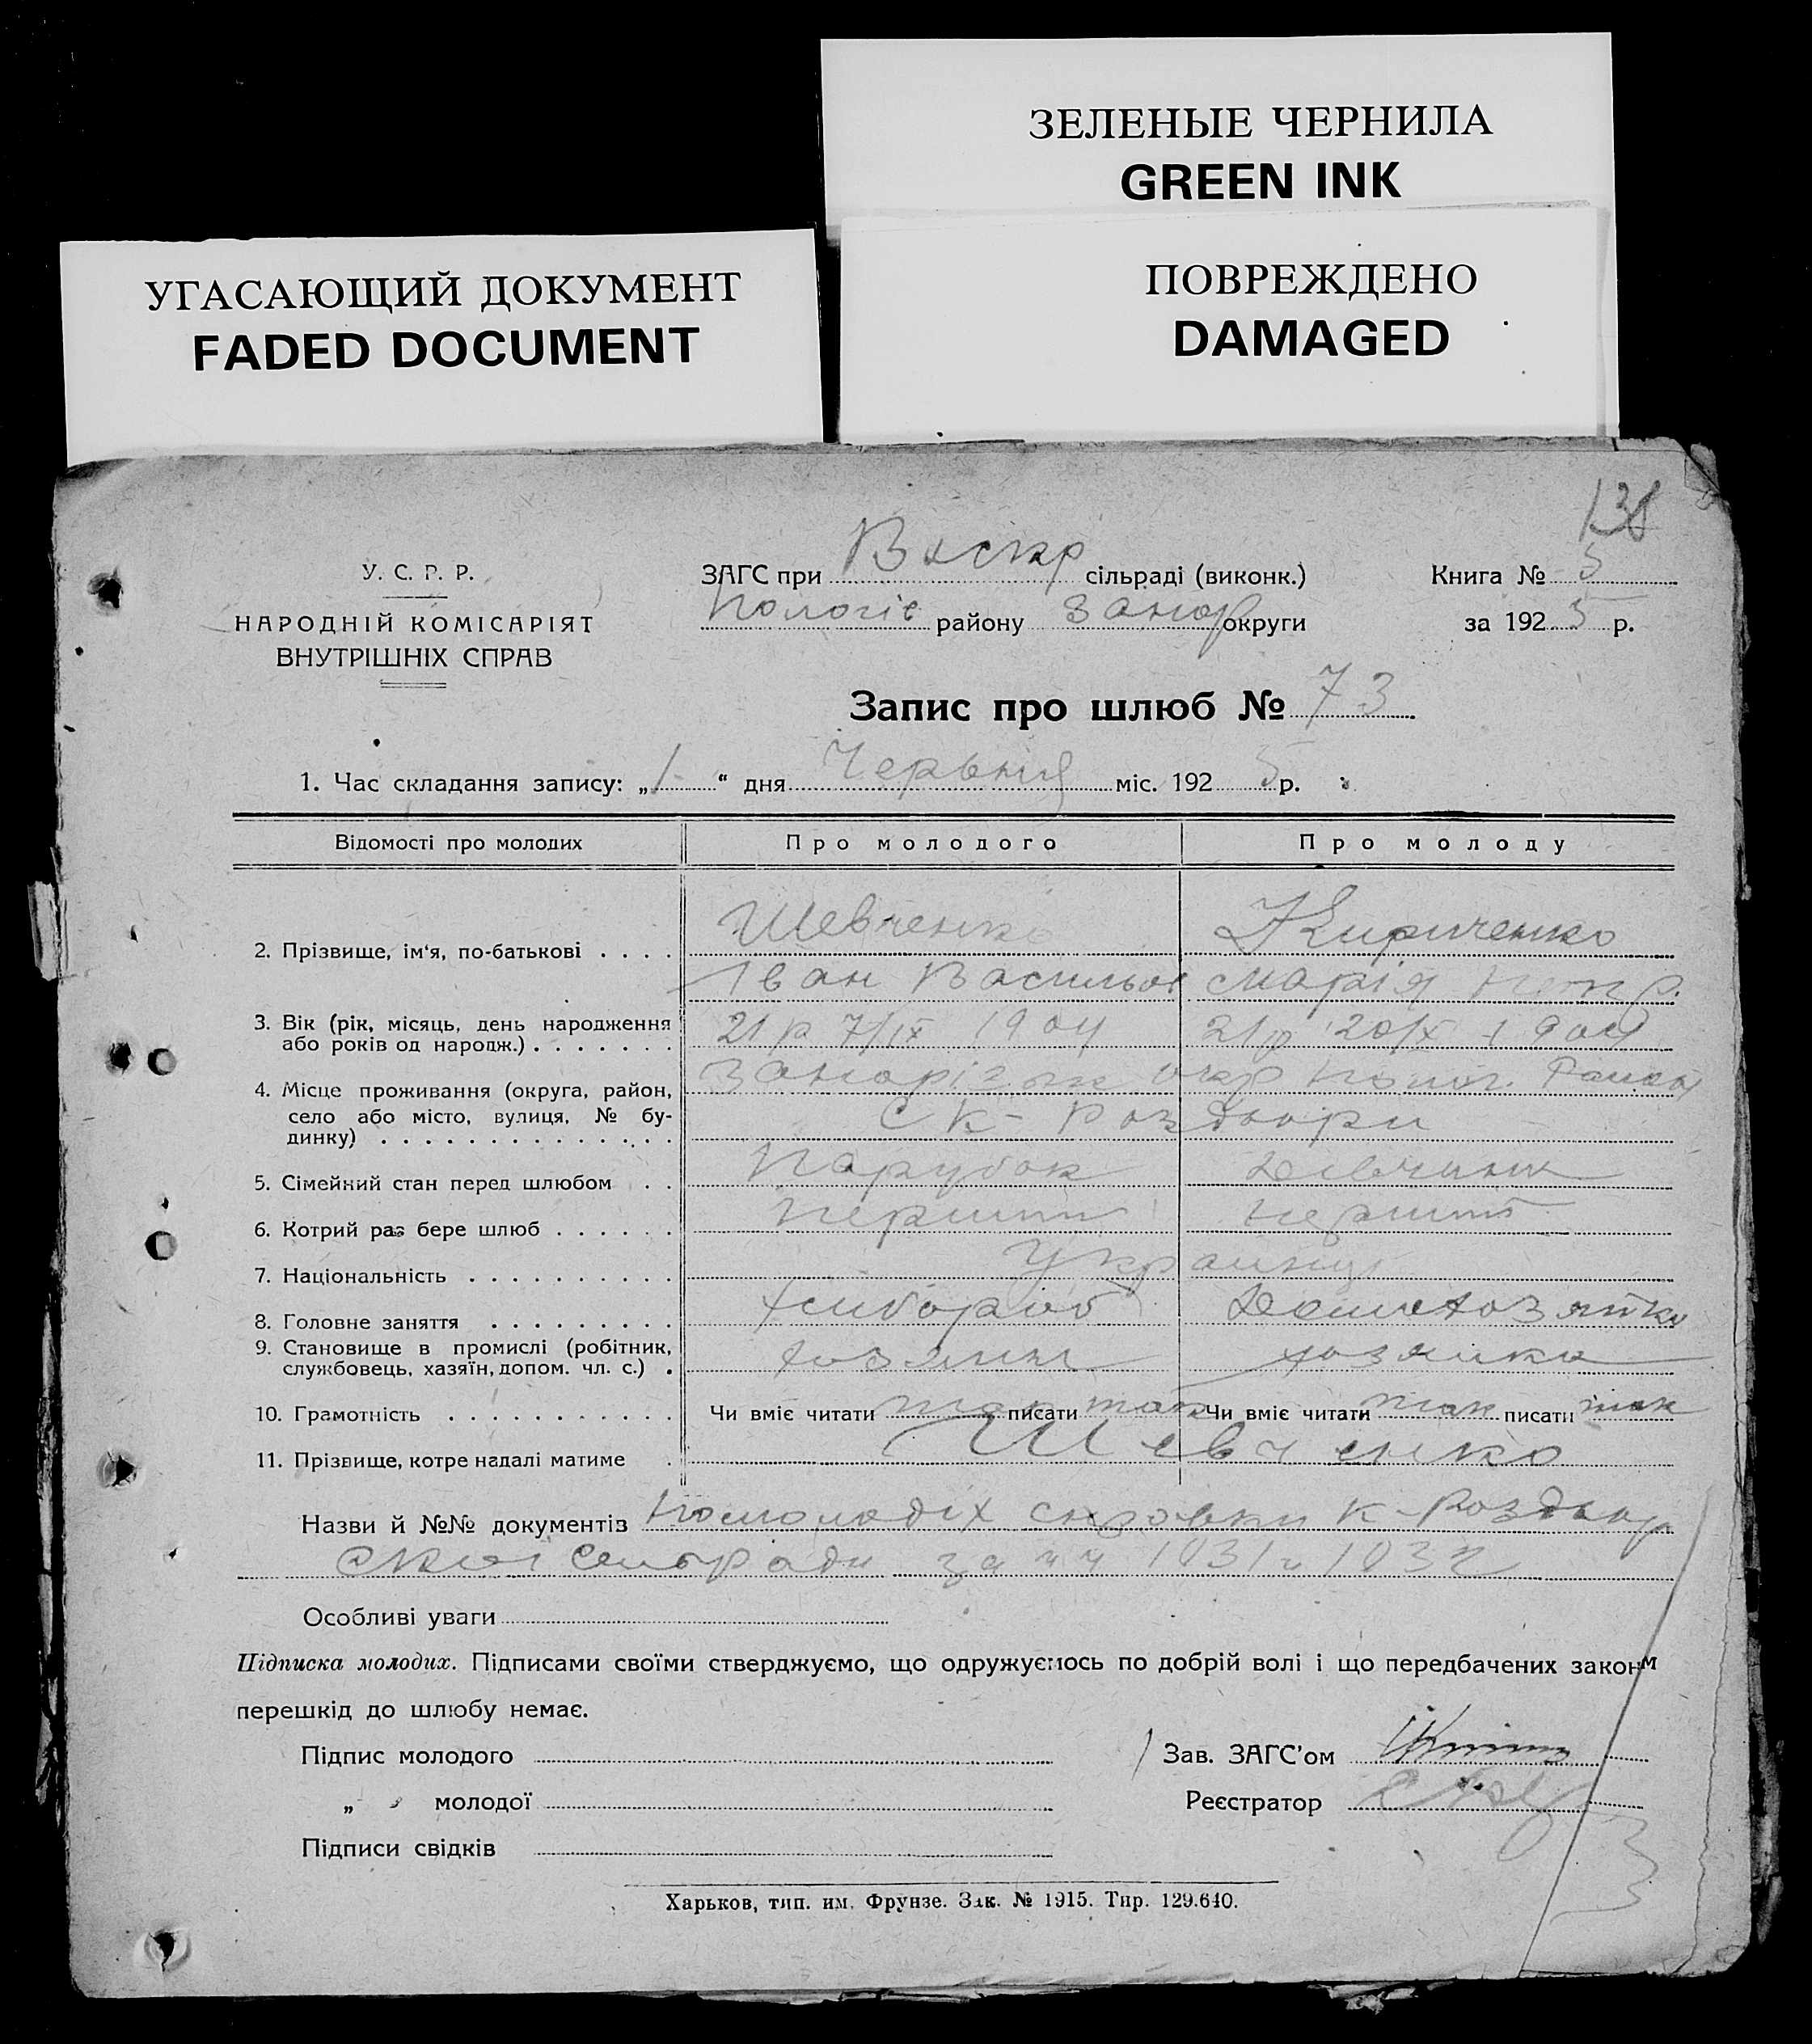 ЗЕЛЕНЫЕ ЧЕРНИЛА
GREEN INK
УГАСАЮЩИЙ ДОКУМЕНТ
FADED DOCUMENT
ПОВРЕЖДЕНО
DAMAGED
138
У. С. Р. Р.
НАРОДНІЙ КОМІСАРІЯТ
ВНУТРІШНІХ СПРАВ
ЗАГС при сільраді (виконк.)
Пологів району Запор округи
Книга № 5
за 1925 р.
Запис про шлюб № 73
1. Час складання запису: „1“ дня Червня міс. 1925 р.
Відомості про молодих Про молодого Про молоду
Шевченко Кириченко
2. Прізвище, ім'я, по-батькові . . . .
Іван Васильов Марія Петр.
3. Вік (рік, місяць, день народження 21 р 7/IX 1904 21 р 20/X 1904
або років од народж.) . . . . . . .
4. Місце проживання (округа, район, Запоріз окр Полог. Район
село або місто, вулиця, № бу- С К-Роздори
динку) . . . . . . . . . . . . . .
5. Сімейний стан перед шлюбом . . Парубок Дівчина
6. Котрий раз бере шлюб . . . . . . перший перший
7. Національність . . . . . . . . . . Украинці
8. Головне заняття . . . . . . . . . Хлибороб Домохозяйка
9. Становище в промислі (робітник,
службовець, хазяїн, допом. чл. с.) . хозяин хозяика
10. Грамотність . . . . . . . . . . . Чи вміє читати так писати так Чи вміє читати так писати так
11. Прізвище, котре надалі матиме . Шевченко
Назви й №№ документів справки К-Роздор
ской сельради за чч 1031 и 1032
Особливі уваги
Підписка молодих. Підписами своїми стверджуємо, що одружуємось по добрій волі і що передбачених законм
перешкід до шлюбу немає.
Підпис молодого Зав. ЗАГС'ом
„ молодої Реєстратор
Підписи свідків
Харьков, тип. им. Фрунзе. Зак. № 1915. Тир. 129.640.